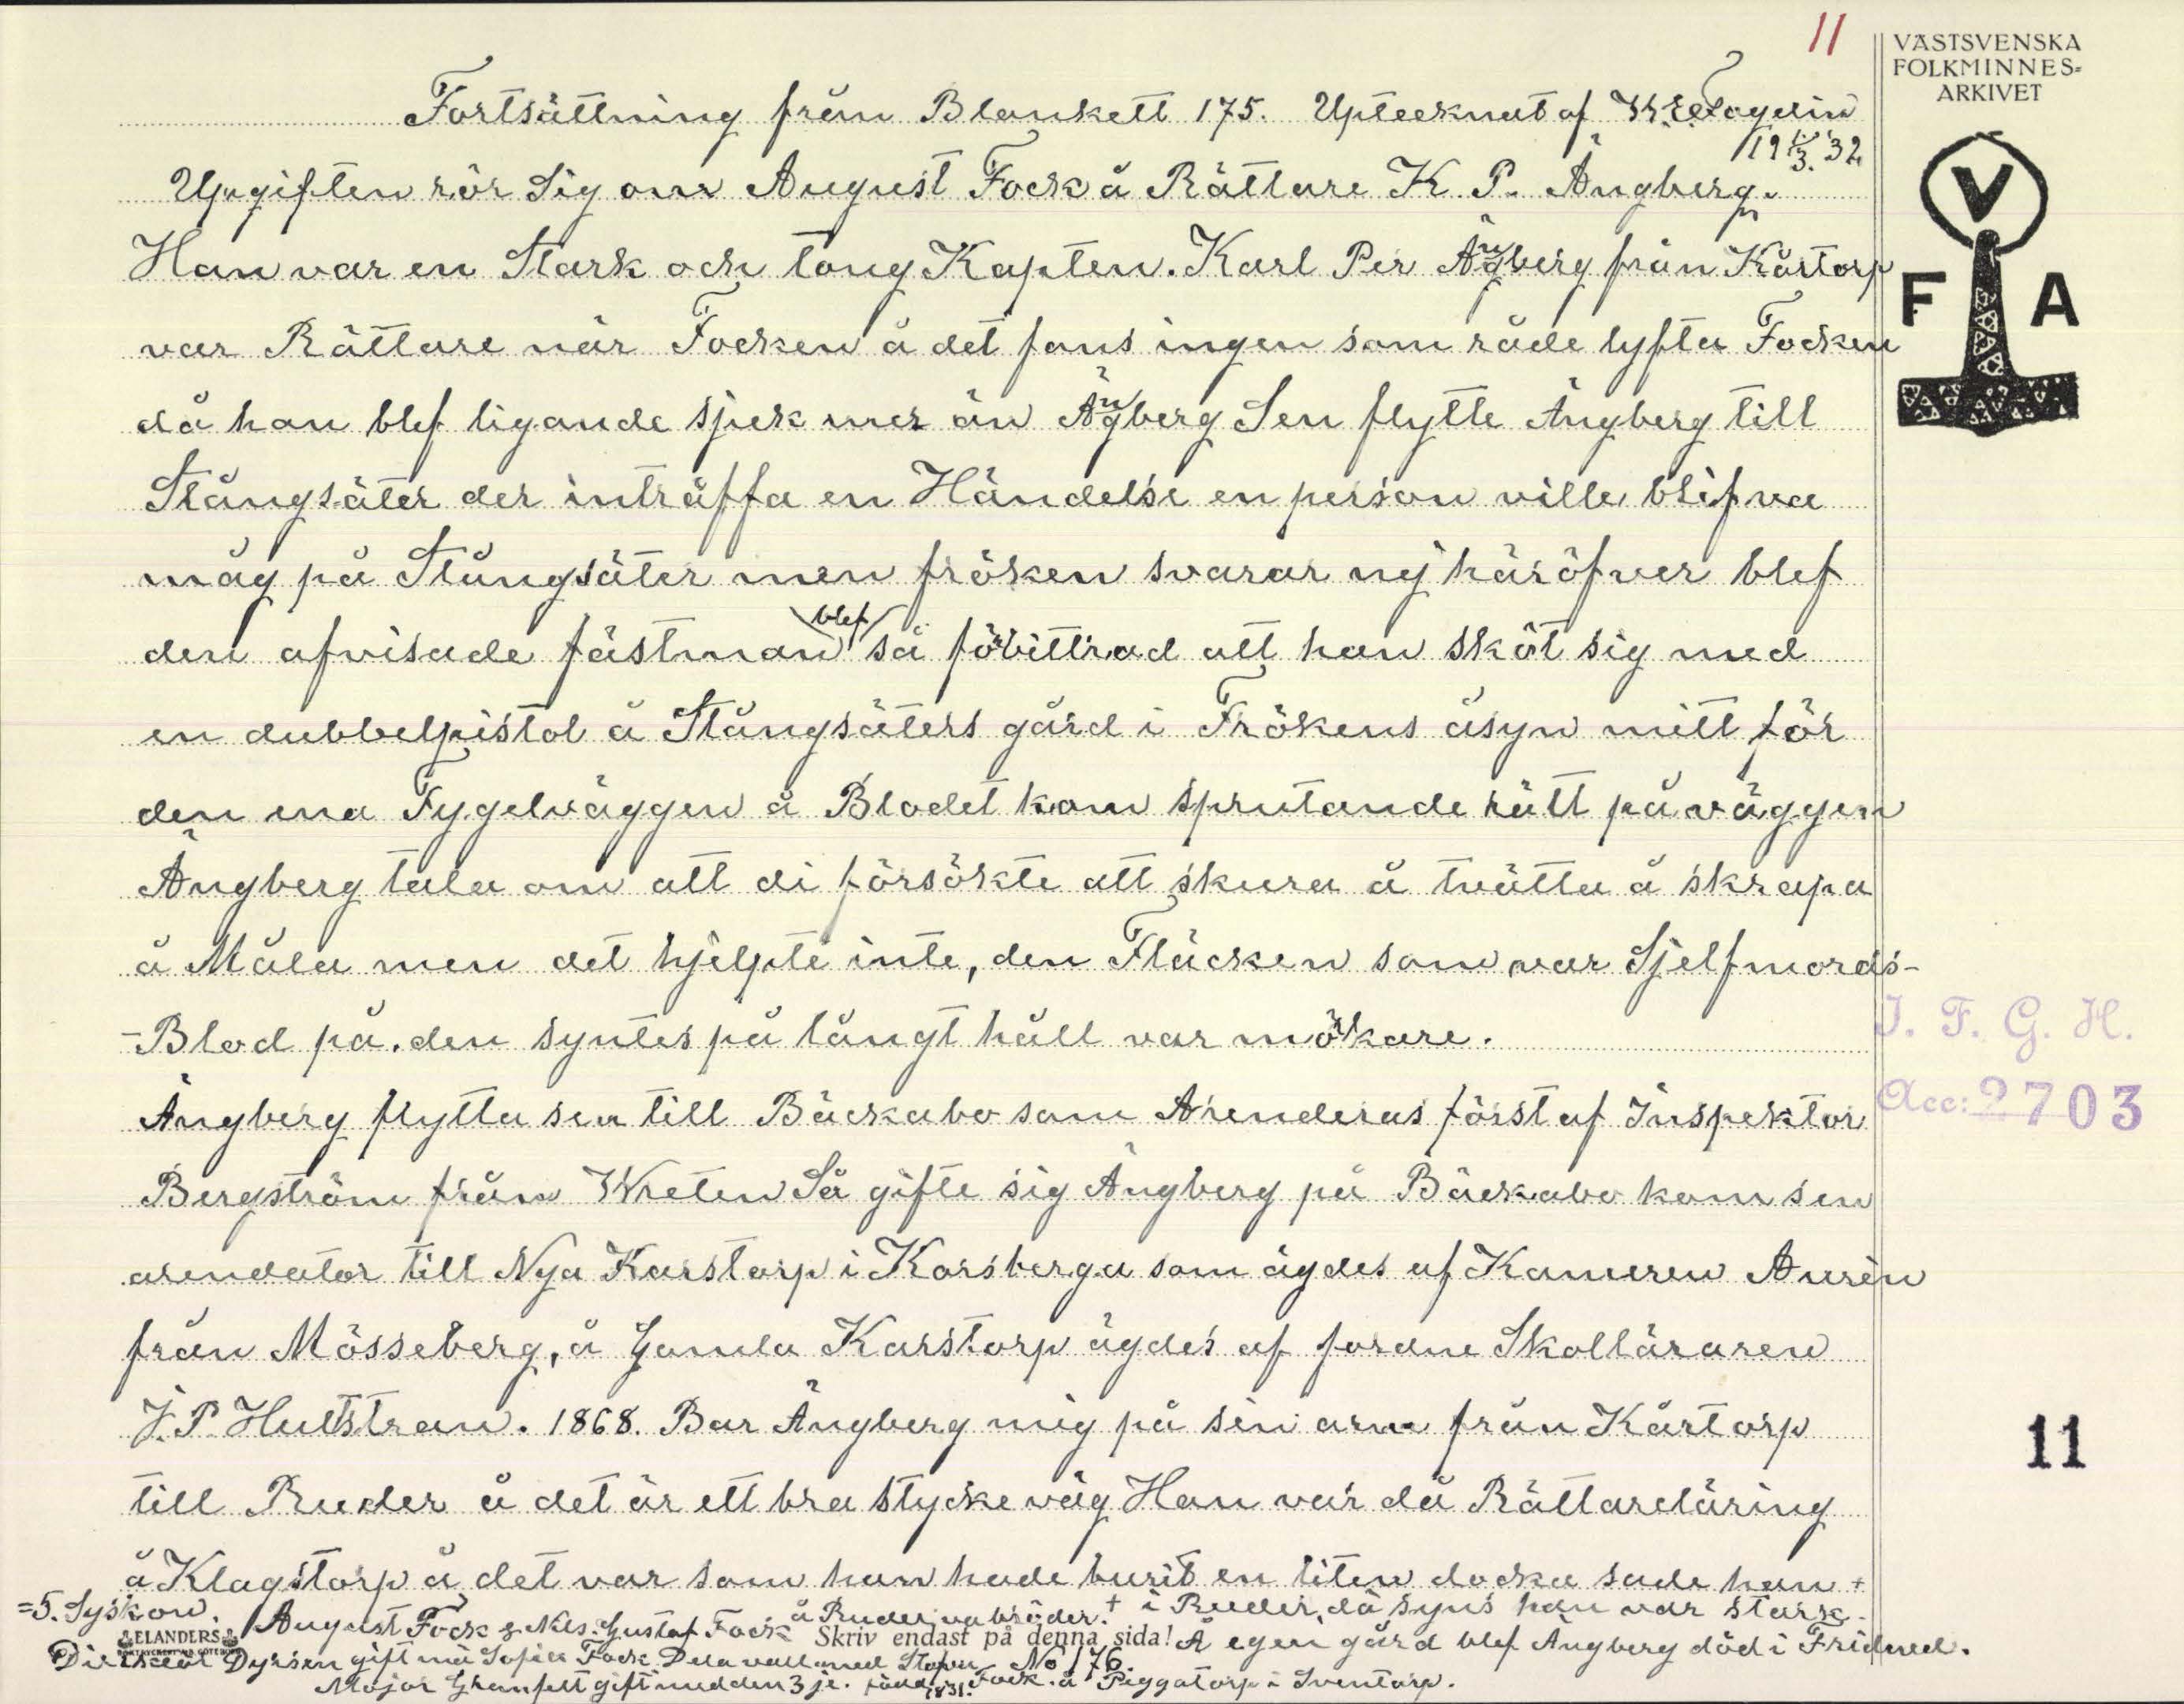 11
VÄSTSVENSKA
FOLKMINNES-
ARKIVET
Fortsättning från Blankett 175. Upteeknat af
19 3. 32
Upgiften rör Sig om August Fock å Rättare K. P. Ängberg.
Han var en Stark och tong Kapten. Karl Per Ängberg från Kårtorp
var Rättare när Focken å det fans ingen som råde lyfta Focken
då han blef ligande sjuk mer än Ängberg Sen flytte Ängberg till
Stångsäter der inträffa en Händelse en person ville blifva
måg på Stångsäter men fröken svarar nej häröfver blef
den afvisade fästman blef så förbittrad att han sköt sig med
en dubbelpistol å Stångsäters gård i Frökens åsyn mitt för
den ena Fygelväggen å Blodet kom sprutande rätt på väggen
Ängberg tala om att di försökte att skura å tvätta å skrapa
å Måla men det hjelpte inte, den Fläcken som var Sjelfmords-
-Blod på. den syntes på långt håll var mörkare.
Ängberg flytta sen till Bäckabo som Arenderas först af Inspektor
Bergström från Wreten Så gifte sig Ängberg på Bäckabo kom sen
arendator till Nya Karstorp i Korsberga som ägdes af Kameren Aurèn
från Mösseberg, å Gamla Karstorp ägdes af fordne Skolläraren
J. P. Hultstran. 1868. Bar Ängberg mig på sin arm från Kårtorp
till Ruder å det är ett bra stycke väg Han var då Rättareläring
å Klagstorp å det var som han hade burit en liten docka sade han +
=5. Syskon. August Fock & Nils. Gustaf Fock å Ruder va bröder. + i Ruder, då syns han var stark.
ELANDERS
Skriv endast på denna sida! Å egen gård blef Ängberg död i Fridened.
Dyrsen gift mä Sofia Fock No 176.
Major Granfelt gift med den 3je. född 1831. Fock. å Piggatorp i Sventorp.
V
F A
I. F. G. H.
Acc: 2703
11